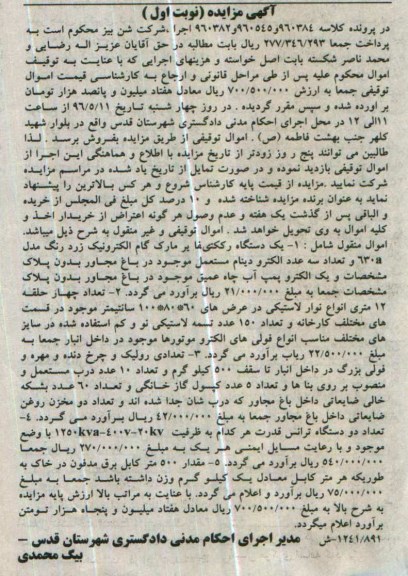 آگهی مزایده (نوبت اول)
در پرونده کلاسه ۹۶۰۳۸۴و۹۶۰۵۴۵و۹۶۰۳۸۲ اجرا.شرکت شن بیز محکوم است به
پرداخت جمعا ۲۷۷/۳۴۶/۲۹۳ ریال بابت مطالبه در حق آقایان عزیز اله رضایی و
محمد ناصر شکسته بابت اصل خواسته و هزینهای اجرایی که با عنایت به توقیف
اموال محکوم علیه پس از طی مراحل قانونی و ارجاع به کارشناسی قیمت اموال
توقیفی جمعا به ارزش ۷۰۰/۵۰۰/۰۰۰ ریال معادل هفتاد میلیون و پانصد هزار تومان
بر اورده شده و سپس مقرر گردیده . در روز چهار شنبه تاریخ ۹۶/۵/۱۱ از ساعت
۱۱الی ۱۲ در محل اجرای احکام مدنی دادگستری شهرستان قدس واقع در بلوار شهید
کلهر جنب بهشت فاطمه (ص) . اموال توقیفی از طریق مزایده بفروش برسد . لذا
طالبین می توانند پنج ر روز زودتر از تاریخ مزایده با اطلاع و هماهنگی این اجرا از
اموال توقیفی بازدید نموده و در صورت تمایل از تاریخ یاد شده در مراسم مزایده
شرکت نمایند .مزایده از قیمت پایه کارشناس شروع و هر کس بالاترین را پیشنهاد
نماید به عنوان برنده مزایده شناخته شده و ۱۰ درصد کل مبلغ فی المجلس از خریده
و الباقی پس از گذشت یک هفته و عدم وصول هر گونه اعتراض از خریدار اخذ و
کلیه اموال به وی تحویل خواهد شد . اموال توقیفی و غیر منقول به شرح ذیل میباشد.
اموال منقول شامل : ۱- یک دستگاه رکتی‌فا یر مارک گام الکترونیک زرد رنگ مدل
۶۳۰a و تعداد سه عدد الکترو دینام مستعمل موجود در باغ مجاور بدون پلاک
مشخصات و یک الکترو پمپ آب چاه عمیق موجود در باغ مجاور بدون پلاک
مشخصات جمعا به مبلغ ۲۱/۰۰۰/۰۰۰ ریال برآورد می گردد. ۲- تعداد چهار حلقه
۱۲ متری انواع نوار لاستیکی در عرض های ۶۰*۸۰*۱۰۰ سانتیمتر موجود در قسمت
های مختلف کارخانه و تعداد ۱۵۰ عدد تسمه لاستیکی نو و کم استفاده شده در سایز
های مختلف مناسب انواع فولی های الکترو موتورها موجود در داخل انبار جمعا به
مبلغ ۲۲/۵۰۰/۰۰۰ ریاب برآورد می گردد. ۳- تعدادی رولیک و چرخ دنده و مهره و
فولی بزرگ در داخل انبار تا سقف ۵۰۰ کیلو گرم و تعداد ۱۰ عدد درب مستعمل و
منصوب بر روی بنا ها و تعداد ۵ عدد کپسول گاز خانگی و تعداد ۶۰ عدد بشکه
خالی ضایعاتی داخل باغ مجاور که درب شان جدا شده اند و تعداد دو مخزن روغن
ضایعاتی داخل باغ مجاور جمعا به مبلغ ۴۲/۰۰۰/۰۰۰ ریال برآورد می گردد. ۴-
تعداد دو دستگاه ترانس قدرت هر کدام به ظرفیت ۱۲۵۰kva-۴۰۰v-۲۰kv با وضع
موجود و با رعایت مسایل ایمنی هر یک به مبلغ ۲۷۰/۰۰۰/۰۰۰ ریال جمعا
۵۴۰/۰۰۰/۰۰۰ ریال برآورد می گردد. ۵- مقدار ۵۰۰ متر کابل برق مدفون در خاک به
طوریکه هر متر کابل معادل یک کیلو گرم وزن داشته باشد جمعا به مبلغ
۷۵/۰۰۰/۰۰۰ ریال برآورد و اعلام می گردد. با عنایت به مراتب بالا ارزش پایه مزایده
به شرح بالا به مبلغ ۷۰۰/۵۰۰/۰۰۰ ریال معادل هفتاد میلیون و پنجاه هزار تومن
برآورد اعلام میگردد.
۱۲۴۱/۸۹۱-ش مدیر اجرای احکام مدنی دادگستری شهرستان قدس –
بیگ محمدی